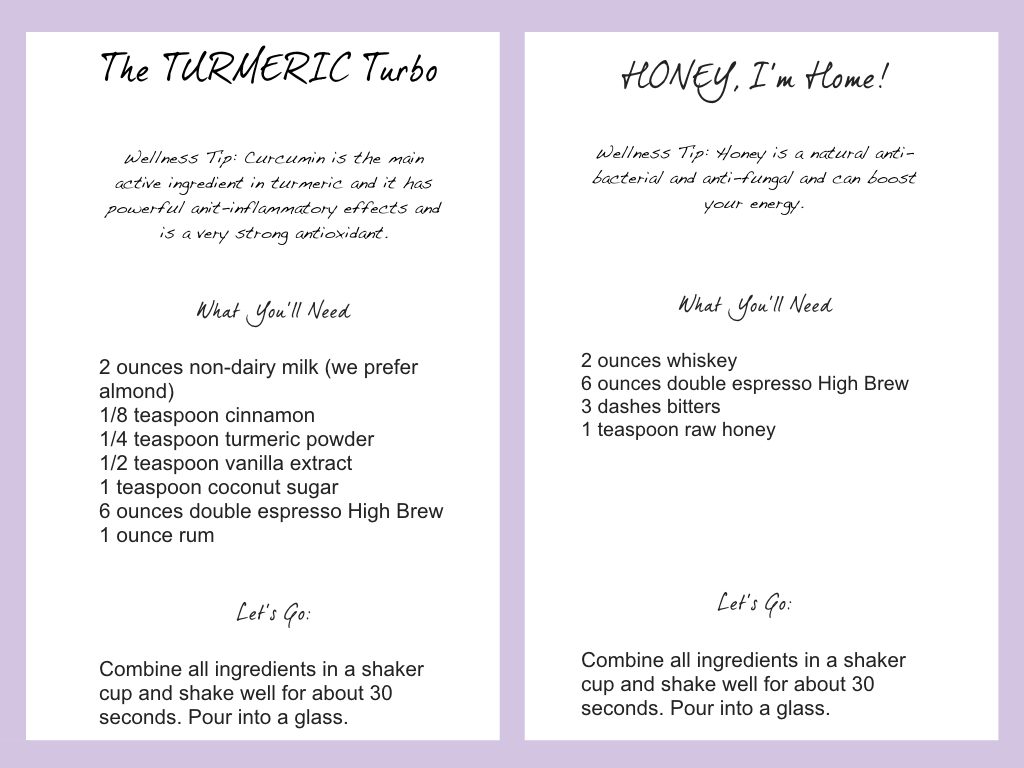 The TURMERIC Turbo
Wellness Tip: Curcumin is the main
active ingredient in turmeric and it has
powerful anit-inflammatory effects and
is a very strong antioxidant.
What You'll Need
2 ounces non-dairy milk (we prefer
almond)
1/8 teaspoon cinnamon
1/4 teaspoon turmeric powder
1/2 teaspoon vanilla extract
1 teaspoon coconut sugar
6 ounces double espresso High Brew
1 ounce rum
Let's Go:
Combine all ingredients in a shaker
cup and shake well for about 30
seconds. Pour into a glass.
HONEY, I'm Home!
Wellness Tip: Honey is a natural anti-
bacterial and anti-fungal and can boost
your energy.
What You'll Need
2 ounces whiskey
6 ounces double espresso High Brew
3 dashes bitters
1 teaspoon raw honey
Let's Go:
Combine all ingredients in a shaker
cup and shake well for about 30
seconds. Pour into a glass.